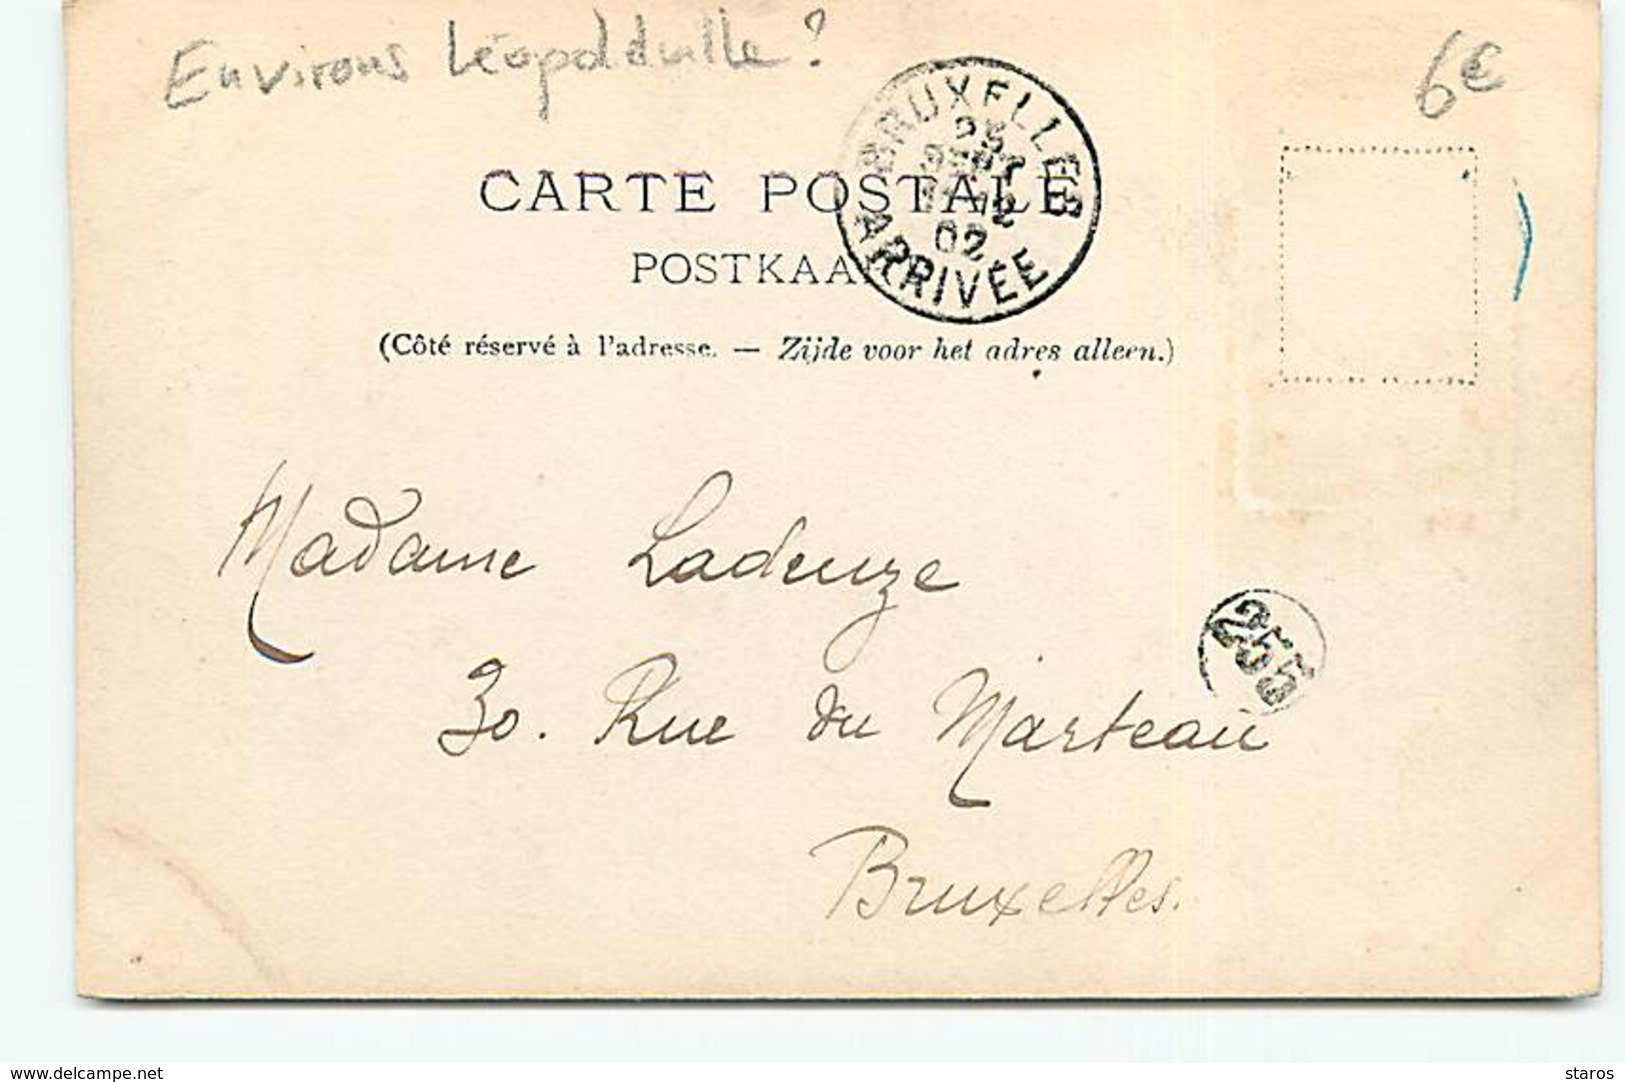 Environs Léopoldville ?
6€
BRUXELLES
25
SEPT
12
02
ARRIVÉE
CARTE POSTALE
POSTKAA
(Côté réservé à l'adresse. — Zijde voor het adres alleen.)
Madame Ladeuze
255
30. Rue du Marteau
Bruxelles.
www.delcampe.net
staros